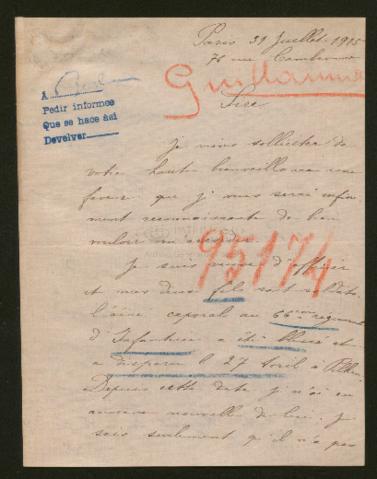 Paris 31 Juillet 1915
76 rue
Guillaume
Sire
A Berlin
Pedir informes
Que se hace así
Devolver
Je viens solliciter de
votre haute bienveillance une
faveur que je vous serai infini
ment reconnaissante de bien
vouloir m'accorder.
95174
Je suis veuve d'officier
et mes deux fils sont soldats
L'aîné, caporal au 66ème régiment
d'Infanterie a été blessé et
a disparu le 27 Avril à
Depuis cette date je n'ai eu
aucune nouvelle de lui. Je
sais seulement qu'il n'a pas